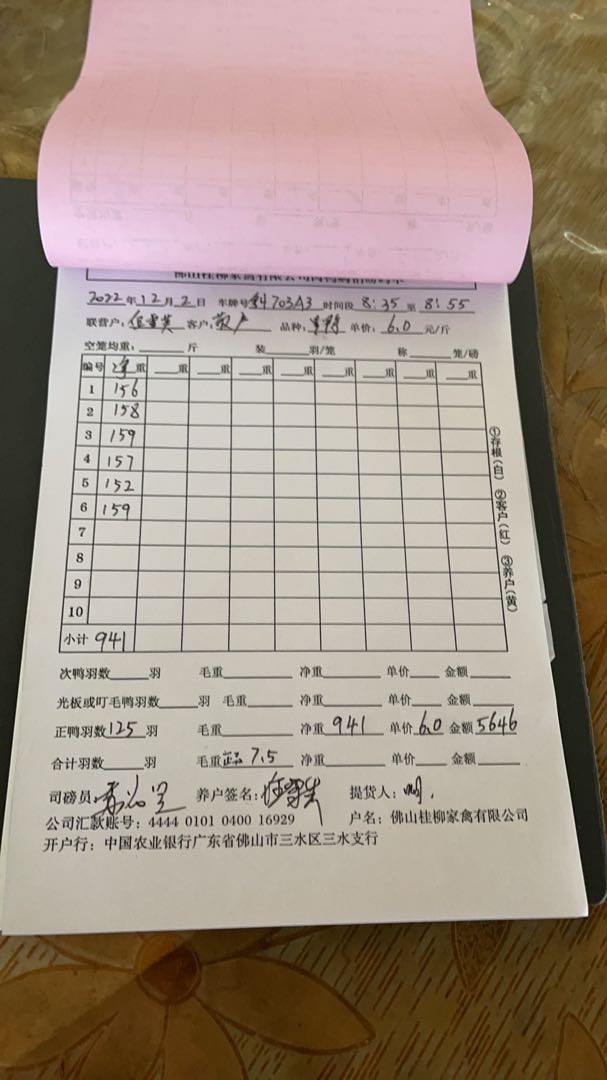 佛山桂柳家禽有限公司肉鸭购销磅码单
2022年12月2日 车牌号 703A3 时间段 8:35 至 8:55
联营户: 客户:散户 品种: 单价:6.0 元/斤
空笼均重:______斤 装______羽/笼 称______笼/磅
编号 净重 ___重 ___重 ___重 ___重 ___重 ___重 ___重
1 156
2 158
3 159
4 157
5 152
6 159
7
8
9
10
小计 941
①存根(白) ②客户(红) ③养户(黄)
次鸭羽数______羽 毛重______ 净重______ 单价____ 金额____
光板或叮毛鸭羽数______羽 毛重______ 净重______ 单价____ 金额____
正鸭羽数125羽 毛重______ 净重 941 单价6.0 金额5646
合计羽数______羽 毛重 7.5 净重______ 单价____ 金额____
司磅员: 养户签名: 提货人:
公司汇款账号:4444 0101 0400 16929 户名:佛山桂柳家禽有限公司
开户行:中国农业银行广东省佛山市三水区三水支行